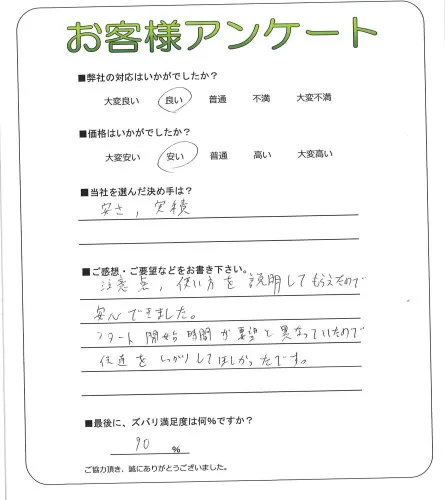 お客様アンケート
■弊社の対応はいかがでしたか?
大変良い 良い 普通 不満 大変不満
■価格はいかがでしたか?
大変安い 安い 普通 高い 大変高い
■当社を選んだ決め手は?
安さ, 実績
■ご感想・ご要望などをお書き下さい。
注意点, 使い方を説明してもらえたので
安心できました。
スタート開始時間が要望と異なっていたので
伝達をしっかりしてほしかったです。
■最後に、ズバリ満足度は何%ですか?
90 %
ご協力頂き、誠にありがとうございました。